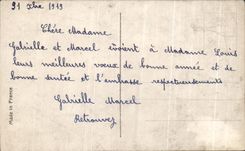 31 Xbre 1919
Chère Madame
Gabrielle et Marcel envoient à Madame Louis
leurs meilleurs vœux de bonne année et de
bonne santée et l'embrasse respectueusements
Gabrielle Marcel
Retrouvez
Made in France